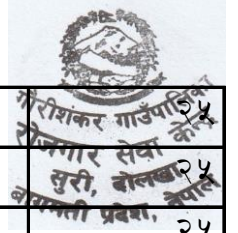 गौरीशंकर गाउँपालिका
रोजगार सेवा केन्द्र
सुरी, दोलखा
बागमती प्रदेश, नेपाल
२५
२५
२५